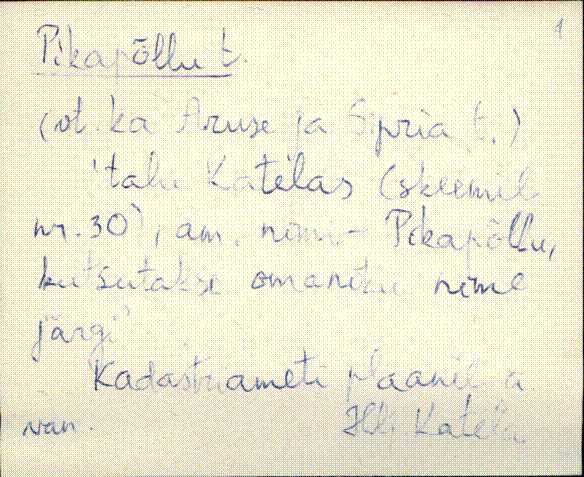 1
Pikapõllu t.
(vt. ka Aruse ja Sipria t.)
'talu Katelas (skeemil
nr. 30), am. nimi - Pikapõllu,
kutsutakse omaniku nime
järgi'
Kadastriameti plaanil a
van. Katela